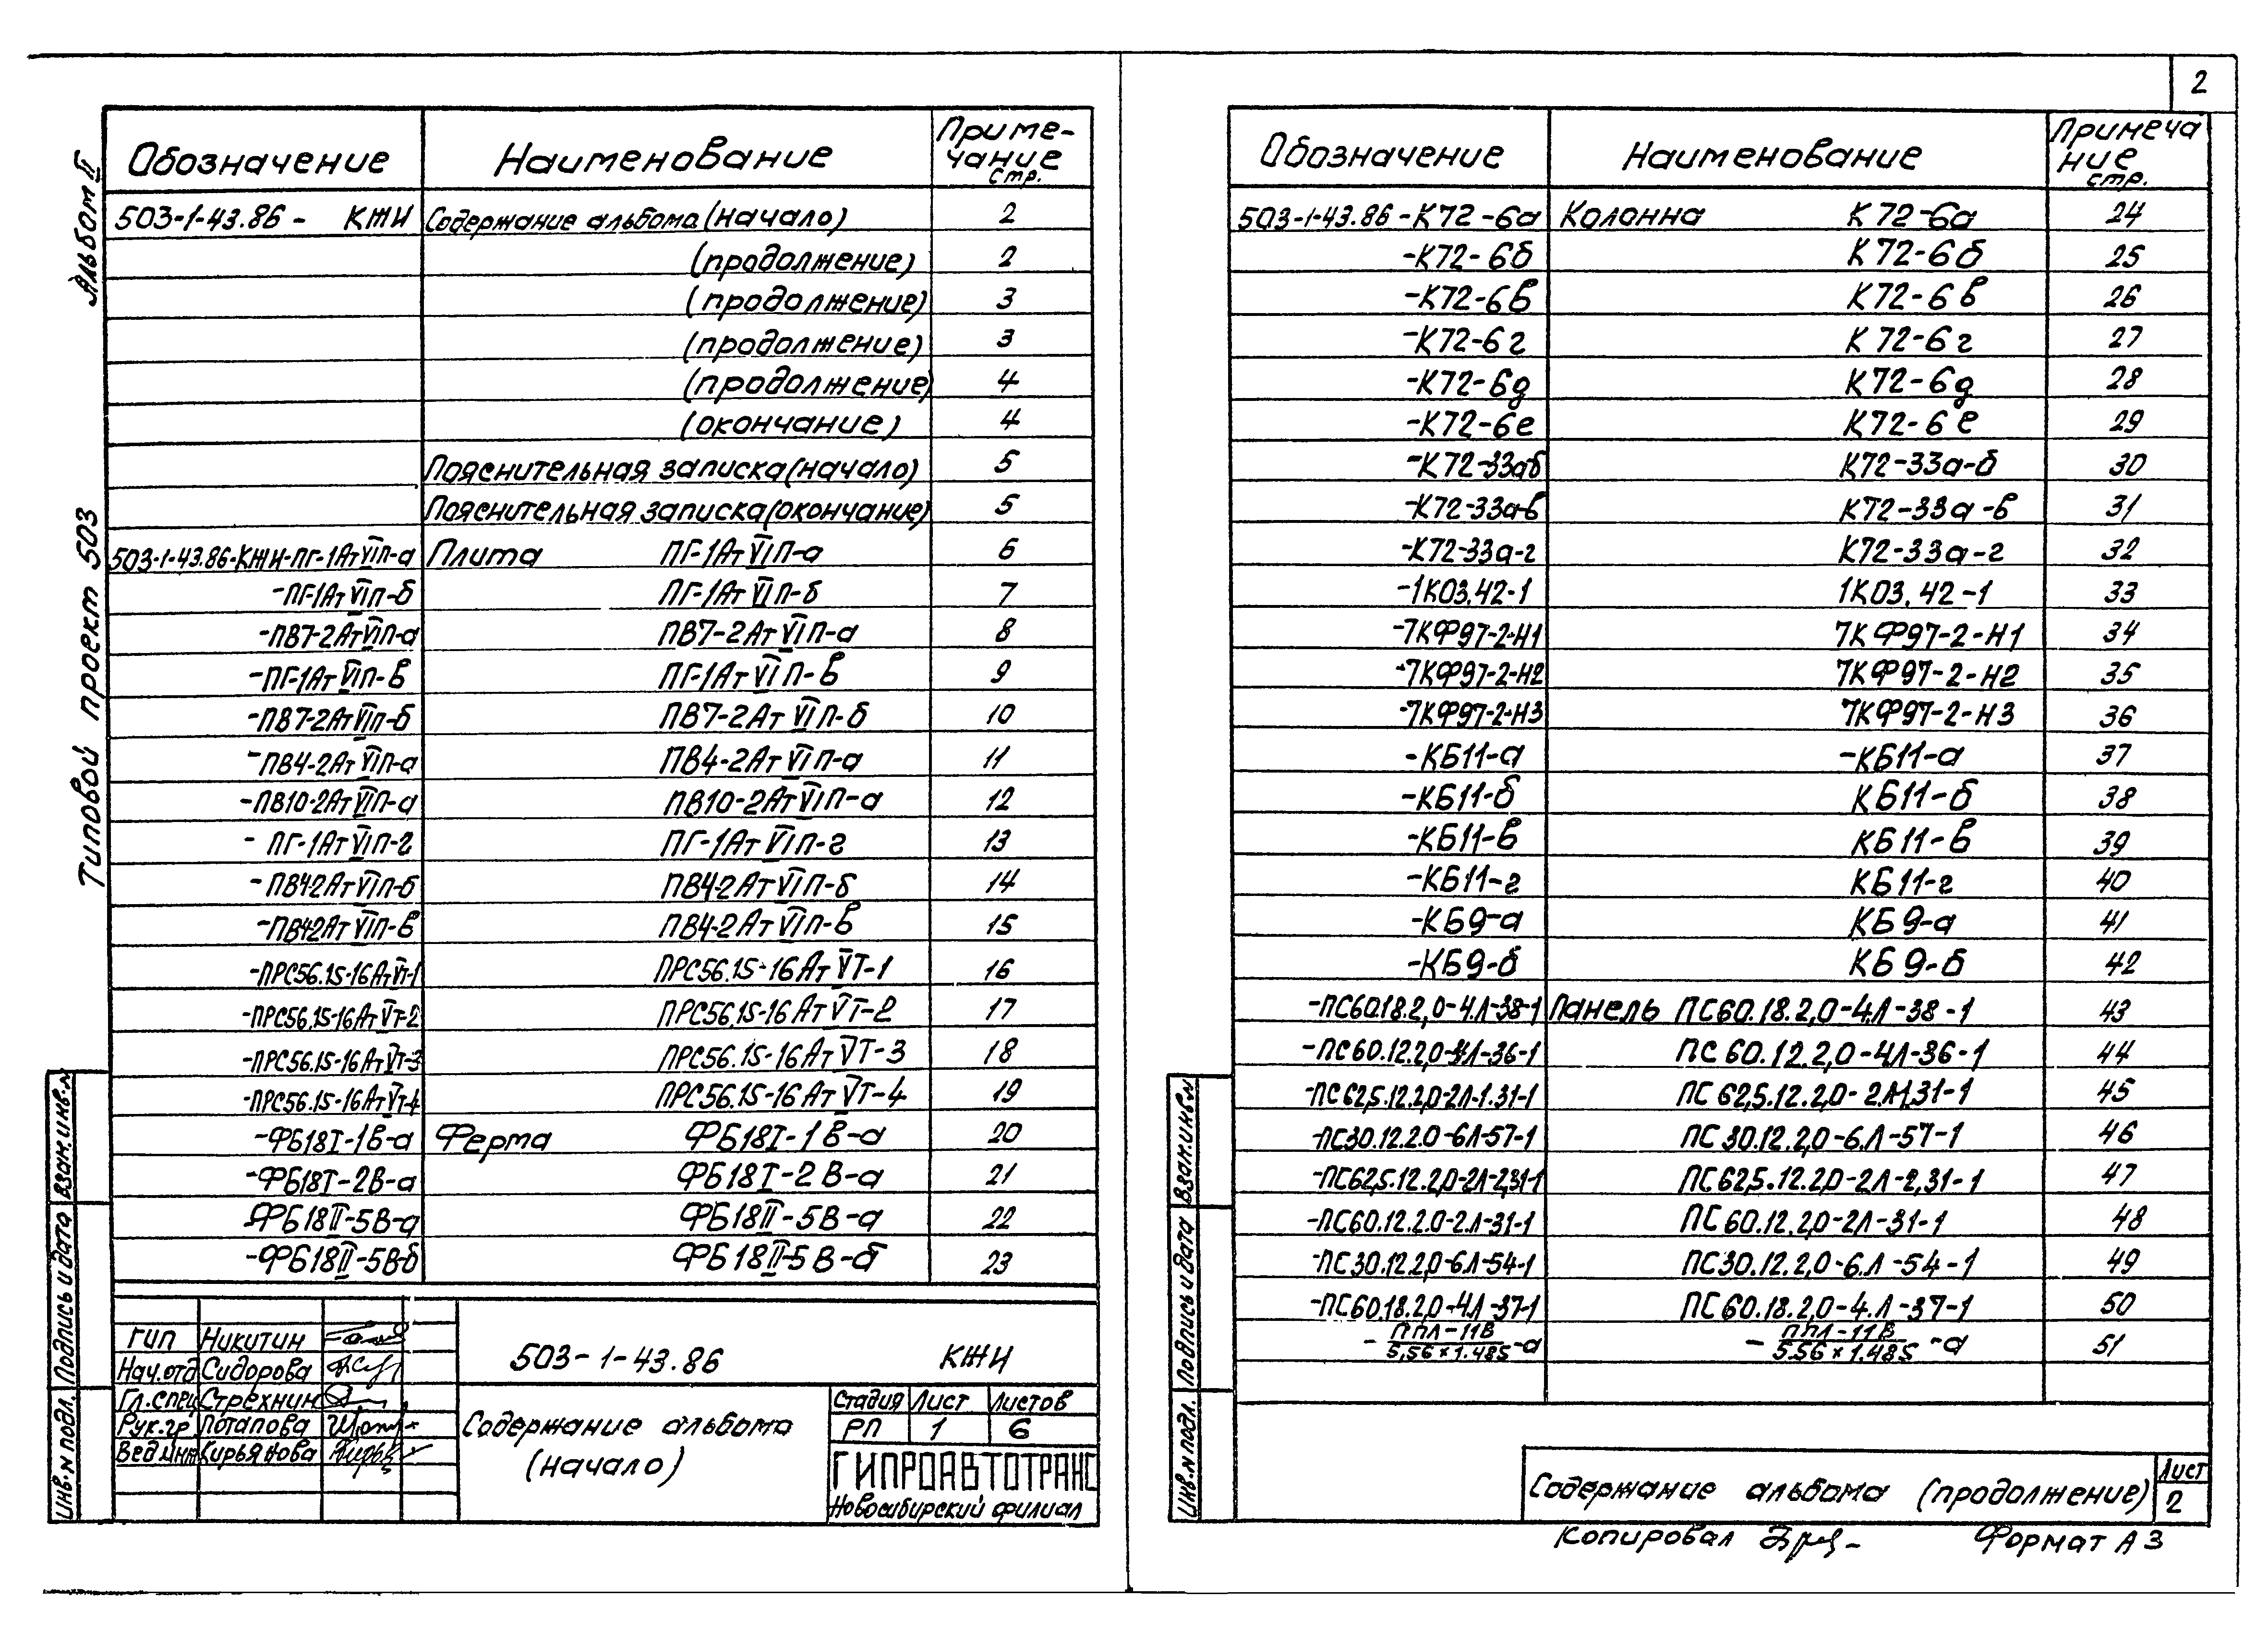 2
Альбом II
Типовой проект 503
Обозначение Наименование Приме-
чание
стр.
503-1-43.86- КЖИ Содержание альбома (начало) 2
(продолжение) 2
(продолжение) 3
(продолжение) 3
(продолжение) 4
(окончание) 4
Пояснительная записка (начало) 5
Пояснительная записка (окончание) 5
503-1-43.86-КЖИ-ПГ-1АтVIП-а Плита ПГ-1АтVIП-а 6
-ПГ-1АтVIП-б ПГ-1АтVIП-б 7
-ПВ7-2АтVIП-а ПВ7-2АтVIП-а 8
-ПГ-1АтVIП-в ПГ-1АтVIП-в 9
-ПВ7-2АтVIП-б ПВ7-2АтVIП-б 10
-ПВ4-2АтVIП-а ПВ4-2АтVIП-а 11
-ПВ10-2АтVIП-а ПВ10-2АтVIП-а 12
- ПГ-1АтVIП-г ПГ-1АтVIП-г 13
- ПВ4-2АтVIП-б ПВ4-2АтVIП-б 14
-ПВ4-2АтVIП-в ПВ4-2АтVIП-в 15
-ПРС56.15-16АтVТ-1 ПРС56.15-16АтVТ-1 16
-ПРС56.15-16АтVТ-2 ПРС56.15-16АтVТ-2 17
-ПРС56.15-16АтVТ-3 ПРС56.15-16АтVТ-3 18
-ПРС56.15-16АтVТ-4 ПРС56.15-16АтVТ-4 19
-ФБ18I-1В-а Ферма ФБ18I-1В-а 20
-ФБ18I-2В-а ФБ18I-2В-а 21
-ФБ18II-5В-а ФБ18II-5В-а 22
-ФБ18II-5В-б ФБ18II-5В-б 23
ГИП Никитин
Нач.отд Сидорова
Гл.спец Стрехнин
Рук.гр Потапова
Вед.инж Кирьянова
503-1-43.86 КЖИ
Содержание альбома
(начало)
Стадия Лист Листов
РП 1 6
ГИПРОАВТОТРАНС
Новосибирский филиал
Взам.инв.N
Подпись и дата
Инв.N подл.
Обозначение Наименование Примеча
ние
стр.
503-1-43.86-К72-6а Колонна К72-6а 24
-К72-6б К72-6б 25
-К72-6в К72-6в 26
-К72-6г К72-6г 27
-К72-6д К72-6д 28
-К72-6е К72-6е 29
-К72-33а-б К72-33а-б 30
-К72-33а-в К72-33а-в 31
-К72-33а-г К72-33а-г 32
-1К03.42-1 1К03.42-1 33
-7КФ97-2-Н1 7КФ97-2-Н1 34
-7КФ97-2-Н2 7КФ97-2-Н2 35
-7КФ97-2-Н3 7КФ97-2-Н3 36
-КБ11-а -КБ11-а 37
-КБ11-б КБ11-б 38
-КБ11-в КБ11-в 39
-КБ11-г КБ11-г 40
-КБ9-а КБ9-а 41
-КБ9-б КБ9-б 42
-ПС60.18.2,0-4.Л-38-1 Панель ПС60.18.2,0-4Л-38-1 43
-ПС60.12.2,0-4Л-36-1 ПС60.12.2,0-4Л-36-1 44
-ПС62,5.12.2,0-2Л-1.31-1 ПС62,5.12.2,0-2Л-1.31-1 45
-ПС30.12.2.0-6Л-57-1 ПС30.12.2,0-6.Л-57-1 46
-ПС62,5.12.2,0-2Л-2,31-1 ПС62,5.12.2,0-2Л-2,31-1 47
-ПС60.12.2.0-2.Л-31-1 ПС60.12.2,0-2Л-31-1 48
-ПС30.12.2,0-6Л-54-1 ПС30.12.2,0-6.Л-54-1 49
-ПС60.18.2,0-4Л-37-1 ПС60.18.2,0-4.Л-37-1 50
- ППЛ-11В - ППЛ-11В
5,56×1.485 -а 5.56×1.485 -а 51
Взам.инв.N
Подпись и дата
Инв.N подл.
Содержание альбома (продолжение) Лист
2
Копировал Формат А3